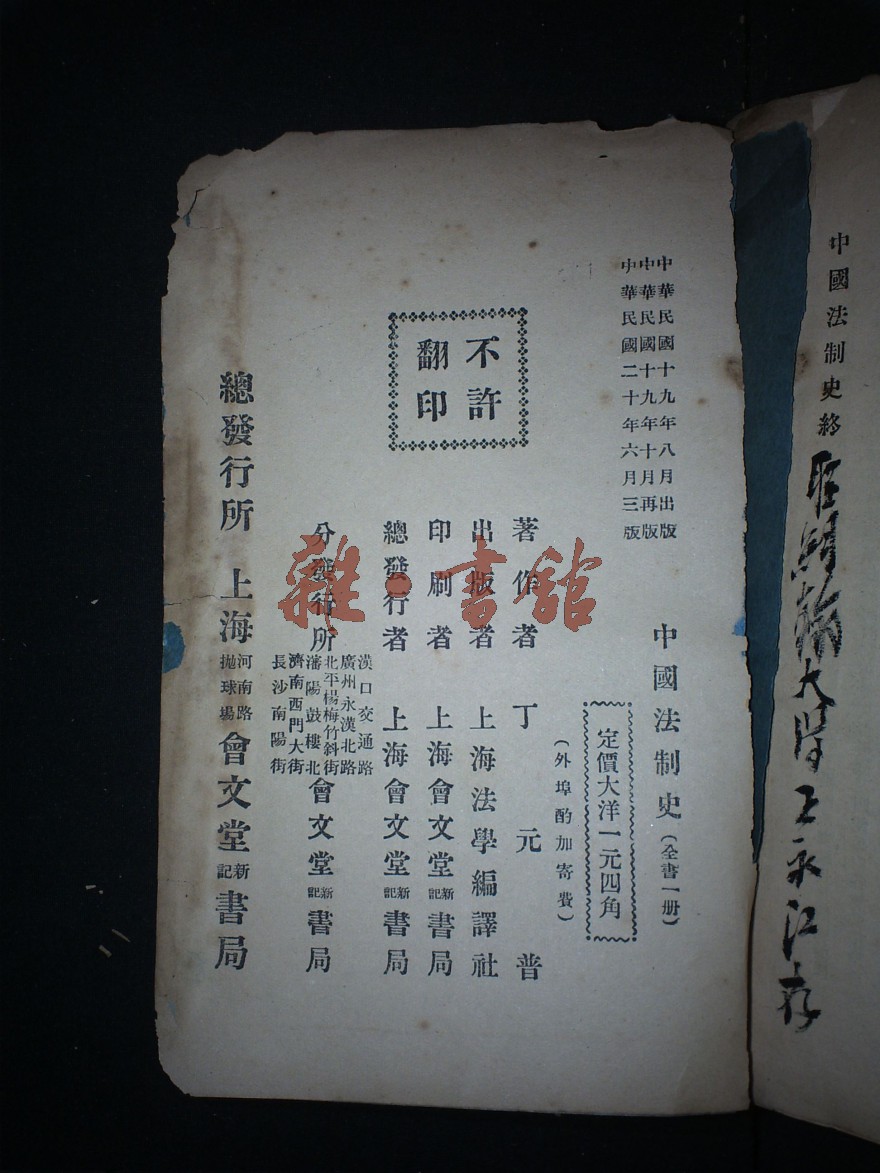 中國法制史終
大學王永江存
中華民國十九年八月出版
中華民國十九年十月再版
中華民國二十年六月三版
中國法制史（全書一册）
定價大洋一元四角
（外埠酌加寄費）
不許
翻印
著作者 丁元普
出版者 上海法學編譯社
印刷者 上海會文堂新記書局
總發行者 上海會文堂新記書局
分發行所
漢口交通路
廣州永漢北路
北平楊梅竹斜街
瀋陽鼓樓北
濟南西門大街
長沙南陽街
會文堂新記書局
總發行所 上海河南路拋球場會文堂新記書局
雜·書館